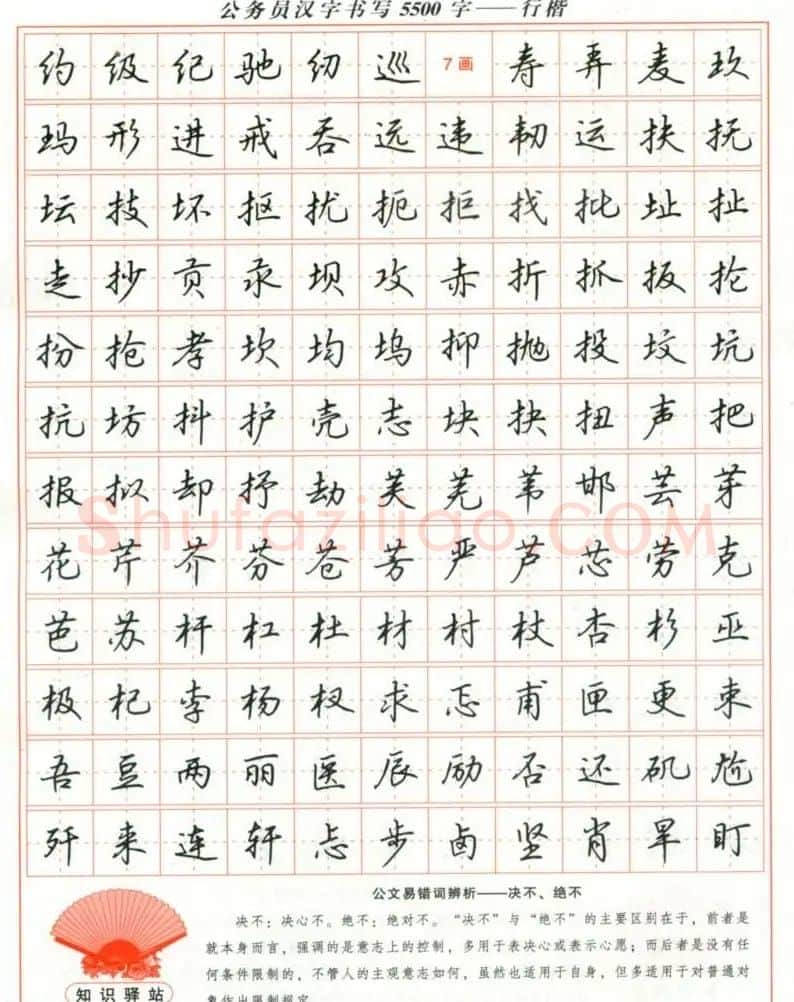 公务员汉字书写5500字——行楷
约 级 纪 驰 纫 巡 7画 寿 弄 麦 玖
玛 形 进 戒 吞 远 违 韧 运 扶 抚
坛 技 坏 抠 扰 扼 拒 找 批 址 扯
走 抄 贡 汞 坝 攻 赤 折 抓 扳 抡
扮 抢 孝 坎 均 坞 抑 抛 投 坟 坑
抗 坊 抖 护 壳 志 块 抉 扭 声 把
报 拟 却 抒 劫 芙 芜 苇 邯 芸 芽
花 芹 芥 芬 苍 芳 严 芦 芯 劳 克
芭 苏 杆 杠 杜 材 村 杖 杏 杉 巫
极 杞 李 杨 杈 求 忑 甫 匣 更 束
吾 豆 两 丽 医 辰 励 否 还 矶 尬
歼 来 连 轩 忐 步 卤 坚 肖 旱 盯
Shufaziliao.COM
公文易错词辨析——决不、绝不
决不：决心不。绝不：绝对不。“决不”与“绝不”的主要区别在于，前者是
就本身而言，强调的是意志上的控制，多用于表决心或表示心愿；而后者是没有任
何条件限制的，不管人的主观意志如何，虽然也适用于自身，但多适用于对普通对
象作出限制规定
知识驿站